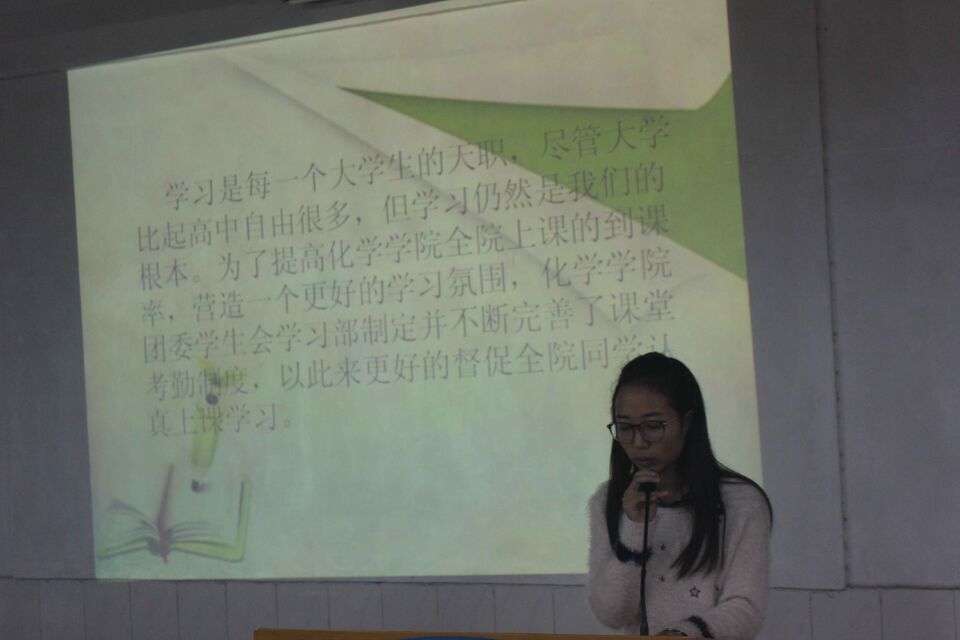 学习是每一个大学生的天职，尽管大学
比起高中自由很多，但学习仍然是我们的
根本。为了提高化学学院全院上课的到课
率，营造一个更好的学习氛围，化学学院
团委学生会学习部制定并不断完善了课堂
考勤制度，以此来更好的督促全院同学认
真上课学习。